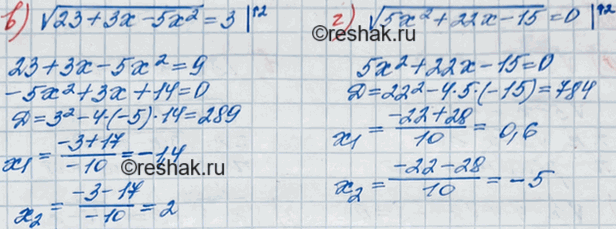 в) √(23+3x-5x²) = 3 |↑2
23+3x-5x²=9
-5x²+3x+14=0
Д=3²-4·(-5)·14=289
x₁ = (-3+17)/(-10) = -1,4
x₂ = (-3-17)/(-10) = 2
г) √(5x²+22x-15) = 0 |↑2
5x²+22x-15=0
Д=22²-4·5·(-15)=784
x₁ = (-22+28)/10 = 0,6
x₂ = (-22-28)/10 = -5